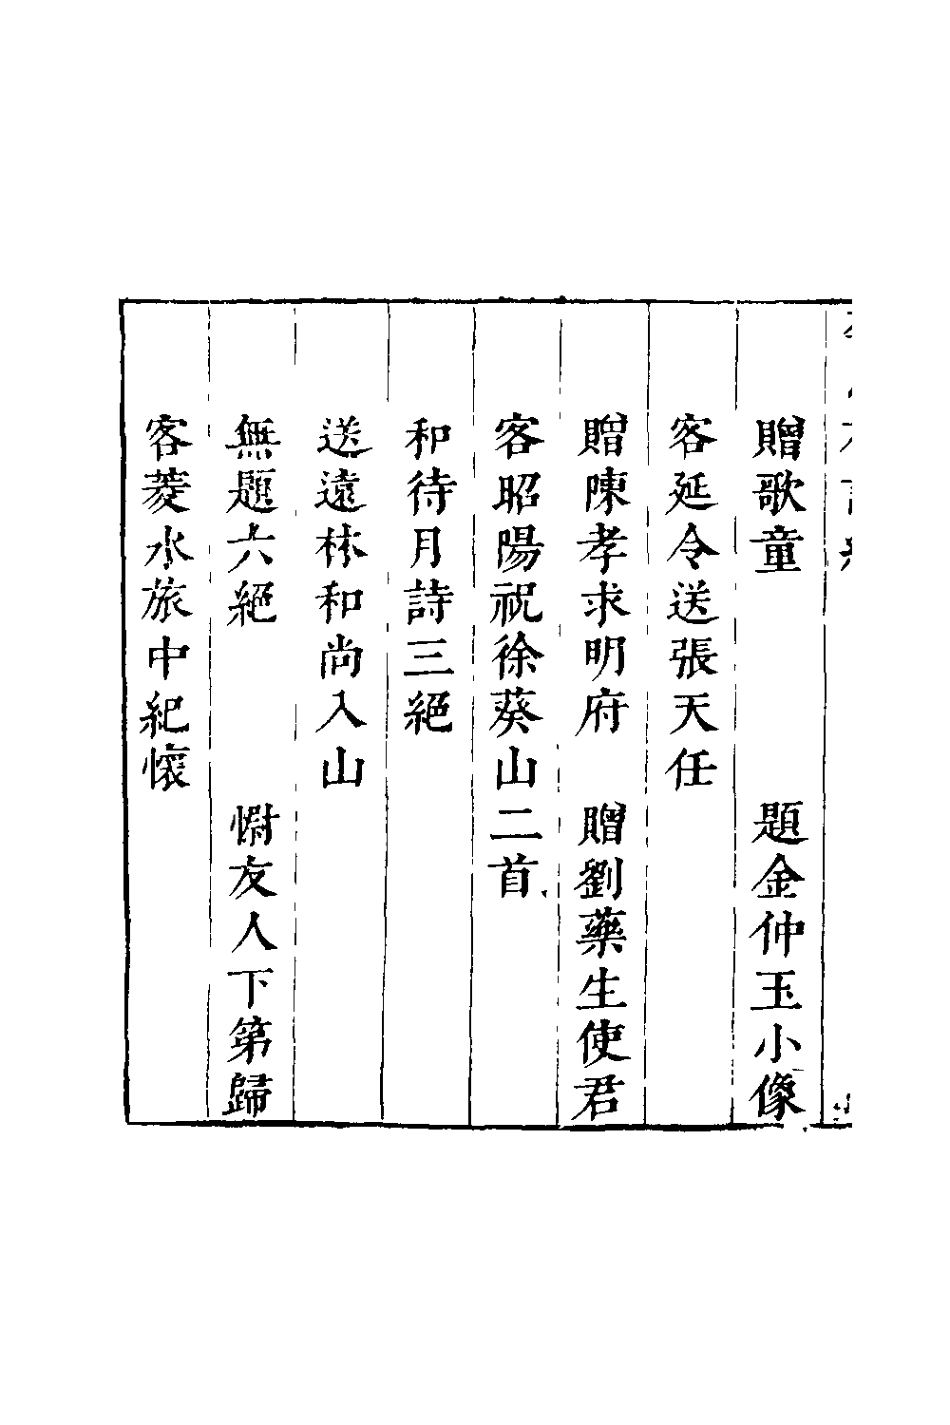 贈歌童　題金仲玉小像
客延令送張天任
贈陳孝求明府　贈劉藥生使君
客昭陽祝徐葵山二首
和待月詩三絕
送遠林和尚入山
無題六絕　慰友人下第歸
客菱水旅中紀懷